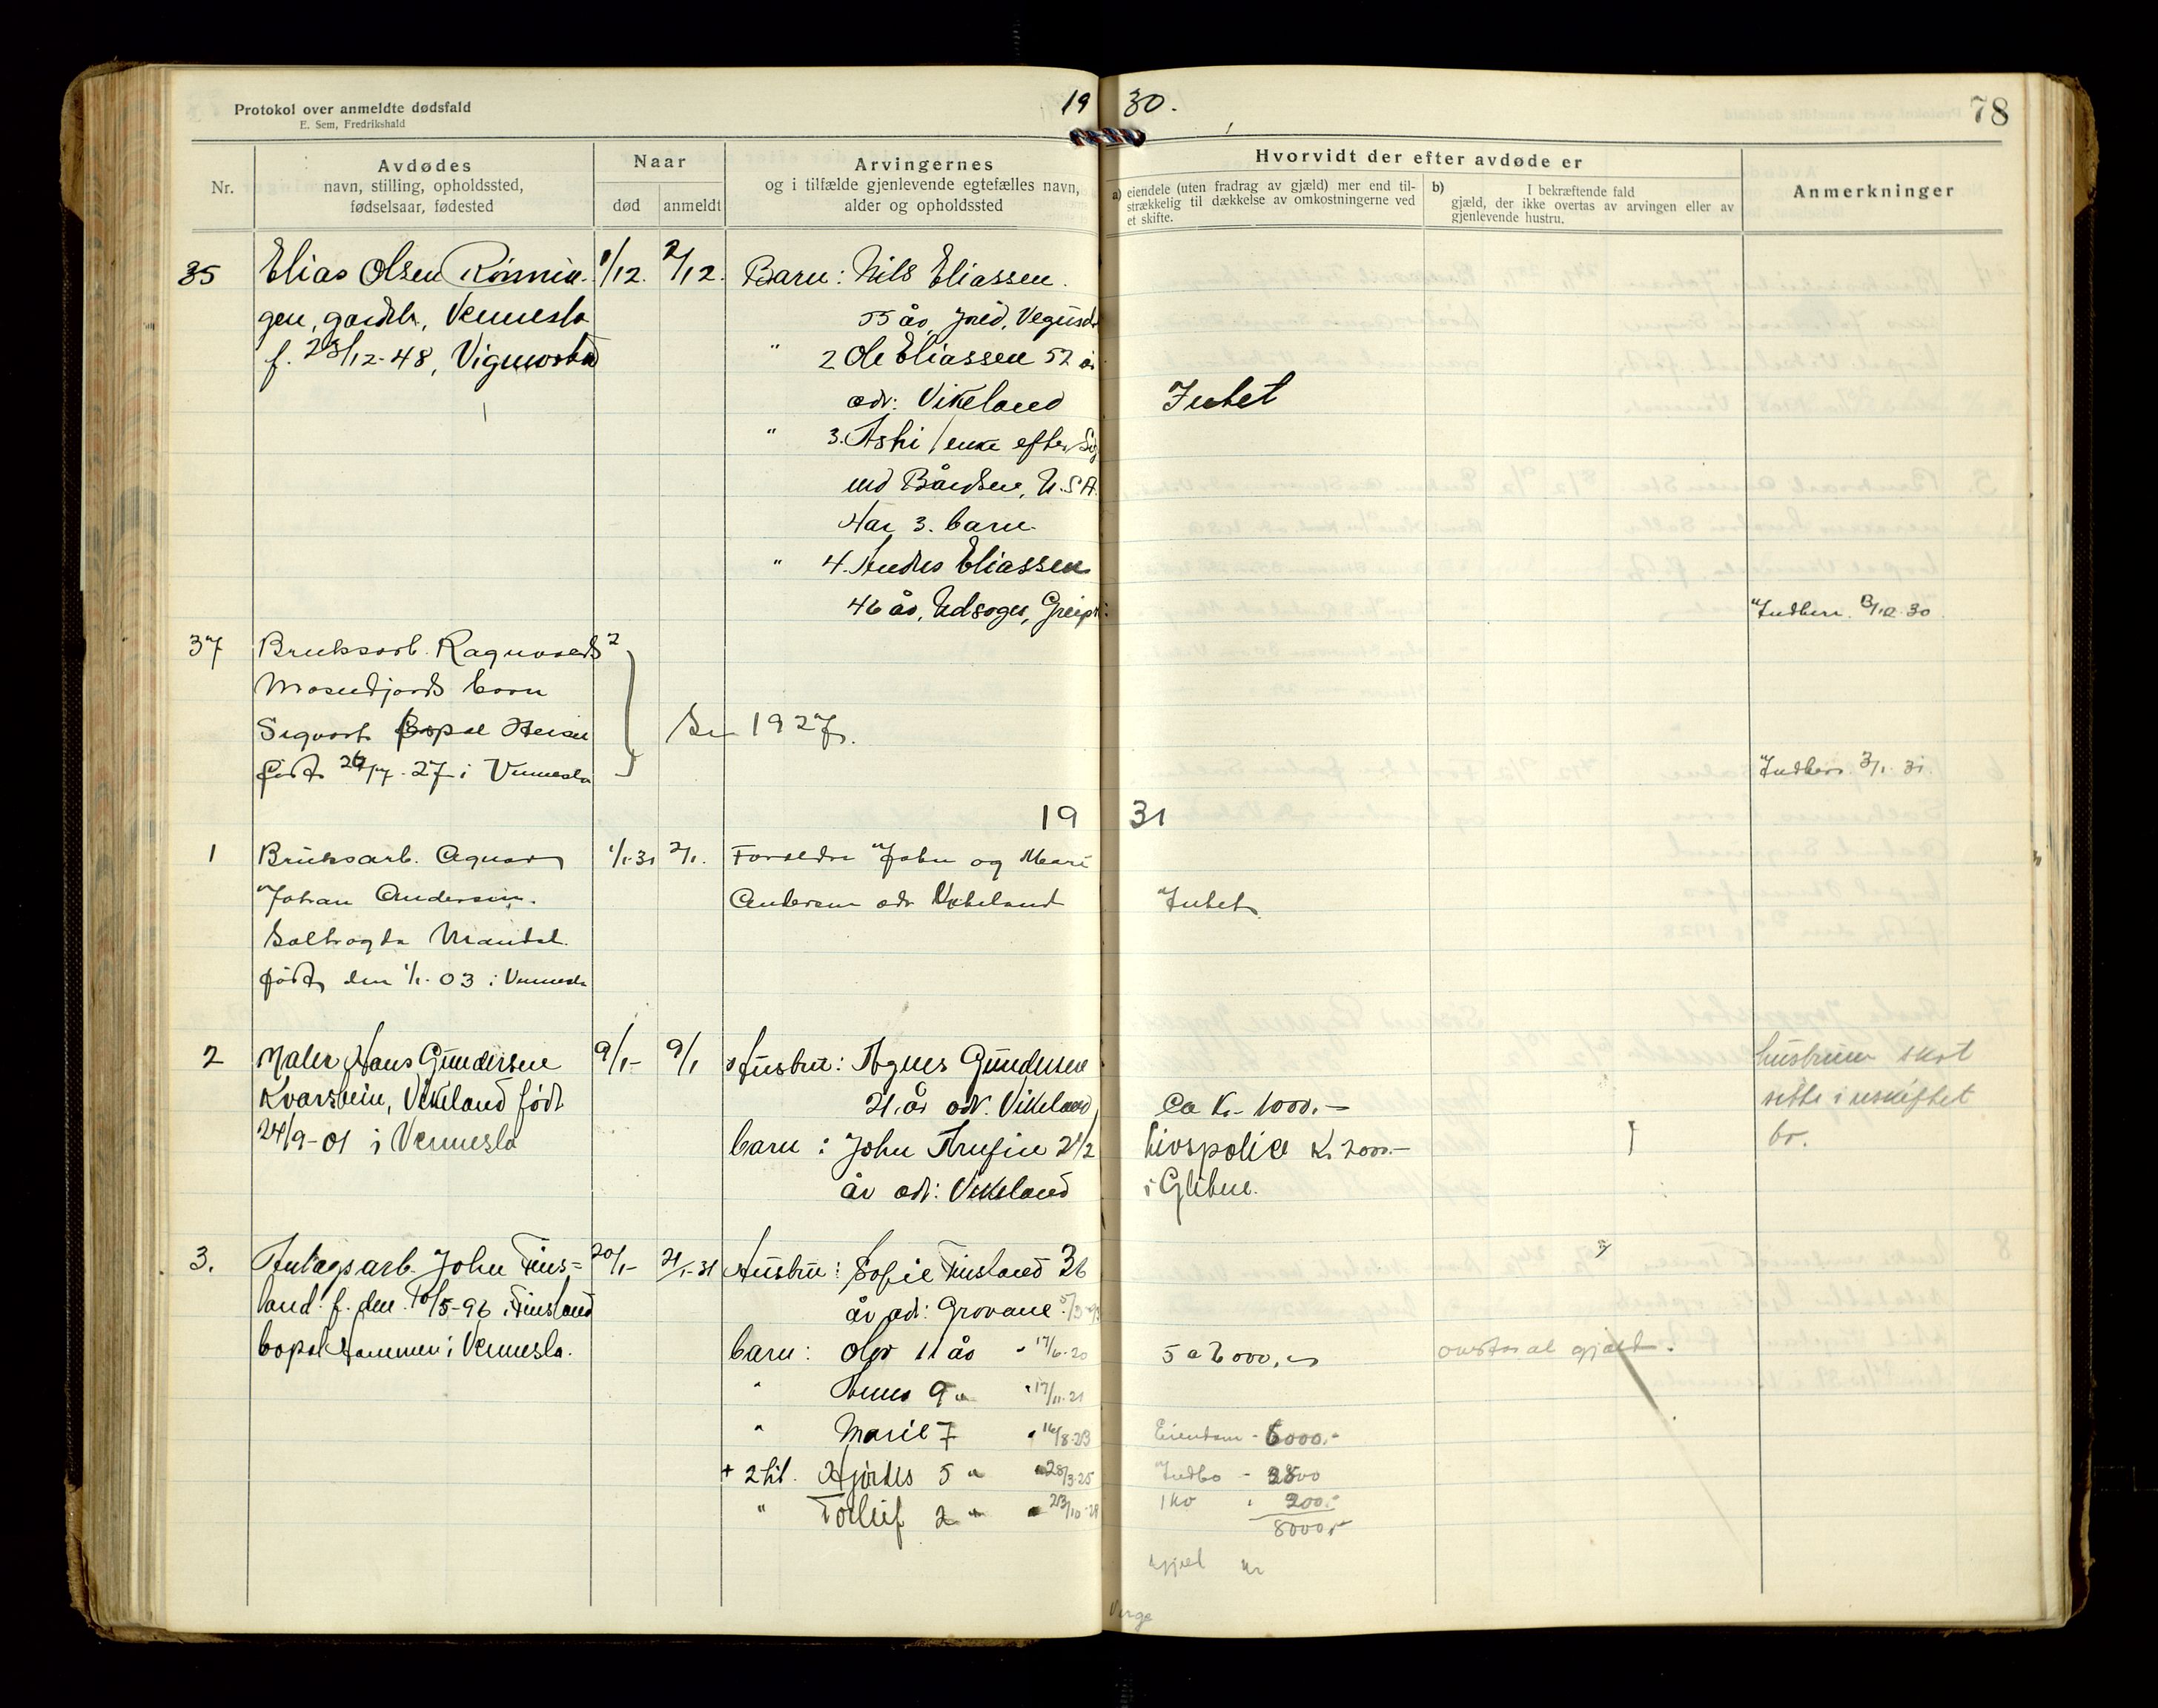 Protokol over anmeldte dødsfald
E. Sem, Fredrikshald
19 30.
78
Nr.
Avdødes
navn, stilling, opholdssted,
fødselsaar, fødested
Naar
død
anmeldt
Arvingernes
og i tilfælde gjenlevende egtefælles navn,
alder og opholdssted
Hvorvidt der efter avdøde er
a) eiendele (uten fradrag av gjæld) mer end til-
strækkelig til dækkelse av omkostningerne ved
et skifte.
b) I bekræftende fald
gjæld, der ikke overtas av arvingen eller av
gjenlevende hustru.
Anmerkninger
35 Elias Olsen 1/12. 2/12. Barn: Nils Eliassen.
gen, gardbr, Vennesla 55 år,
f. 23/12-48, Vigmostad " 2 Ole Eliassen 52 år
adr: Vikeland
Intet
" 3. enke efter Sig
Bårdsen, U.S.A.
Har 3. barn
" 4. Andres Eliassen
46 år,
Indber. /12.30
37 Bruksarb. Ragnvald
barn
Sigvart Bopæl
født 26/ -27 i Vennesla
Se 1927.
Indber. 3/1. 31.
19 31
1 Bruksarb. 1/1-31 2/1. Foreldre John og Mari
Johan Andersen. Andersen adr Vikeland
Intet.
Mandal.
født den 1/1-03 i Vennesla
2 Maler Hans Gundersen 9/1- 9/1 Hustru: Agnes Gundersen
Kvarstein, Vikeland født 21 år adr. Vikeland,
24/9-01 i Vennesla barn: John Arnfin 2 1/2
år adr: Vikeland
Ca Kr. 1000.-
Livspolice Kr 2000.-
i Glitne.
hustruen skal
sitte i uskiftet
bo.
3. Anlægsarb. John Fins= 20/1- 21/1-31 Hustru: Sofie Finsland 36
land. f. den 10/5-96 i Finsland år adr: Grovane
bopæl Hammen i Vennesla. barn: Olav 11 år " 17/6-20
5 a 6000,
" Anna 9 " " 17/11-21
" Marie 7 " 16/8-23
+ 2 til. Hjørdis 5 " 28/3-25
" Tolleif 2 " 23/10-28
Eiendom - 6000.-
Indbo -
1 ko " 200.-
8000,-
Gjæl kr
Verge